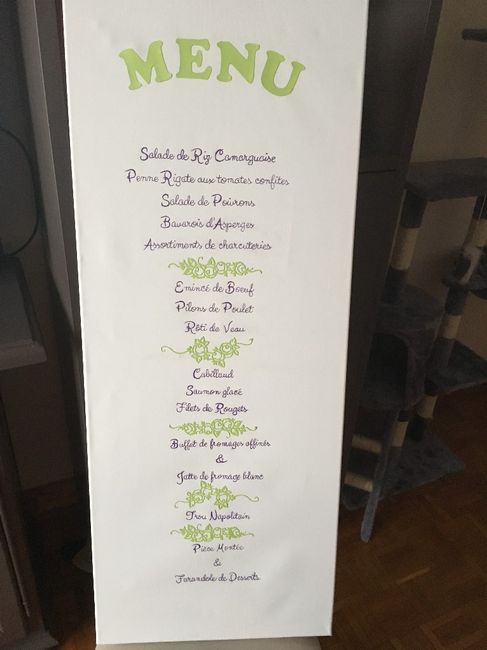 MENU
Salade de Riz Camarguaise
Penne Rigate aux tomates confites
Salade de Poivrons
Bavarois d'Asperges
Assortiments de charcuteries
Emincé de Boeuf
Pilons de Poulet
Rôti de Veau
Cabillaud
Saumon glacé
Filets de Rougets
Buffet de fromages affinés
&
Jatte de fromage blanc
Trou Napolitain
Pièce Montée
&
Farandole de Desserts